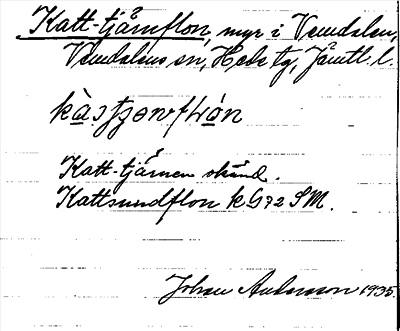 Katt-tjärnflon, myr i Vemdalen,
Vemdalens sn, Hede tg, Jämtl. l.
Katt-tjärnen
Kattsundflon k G72 SM.
Johan Anderson 1935.